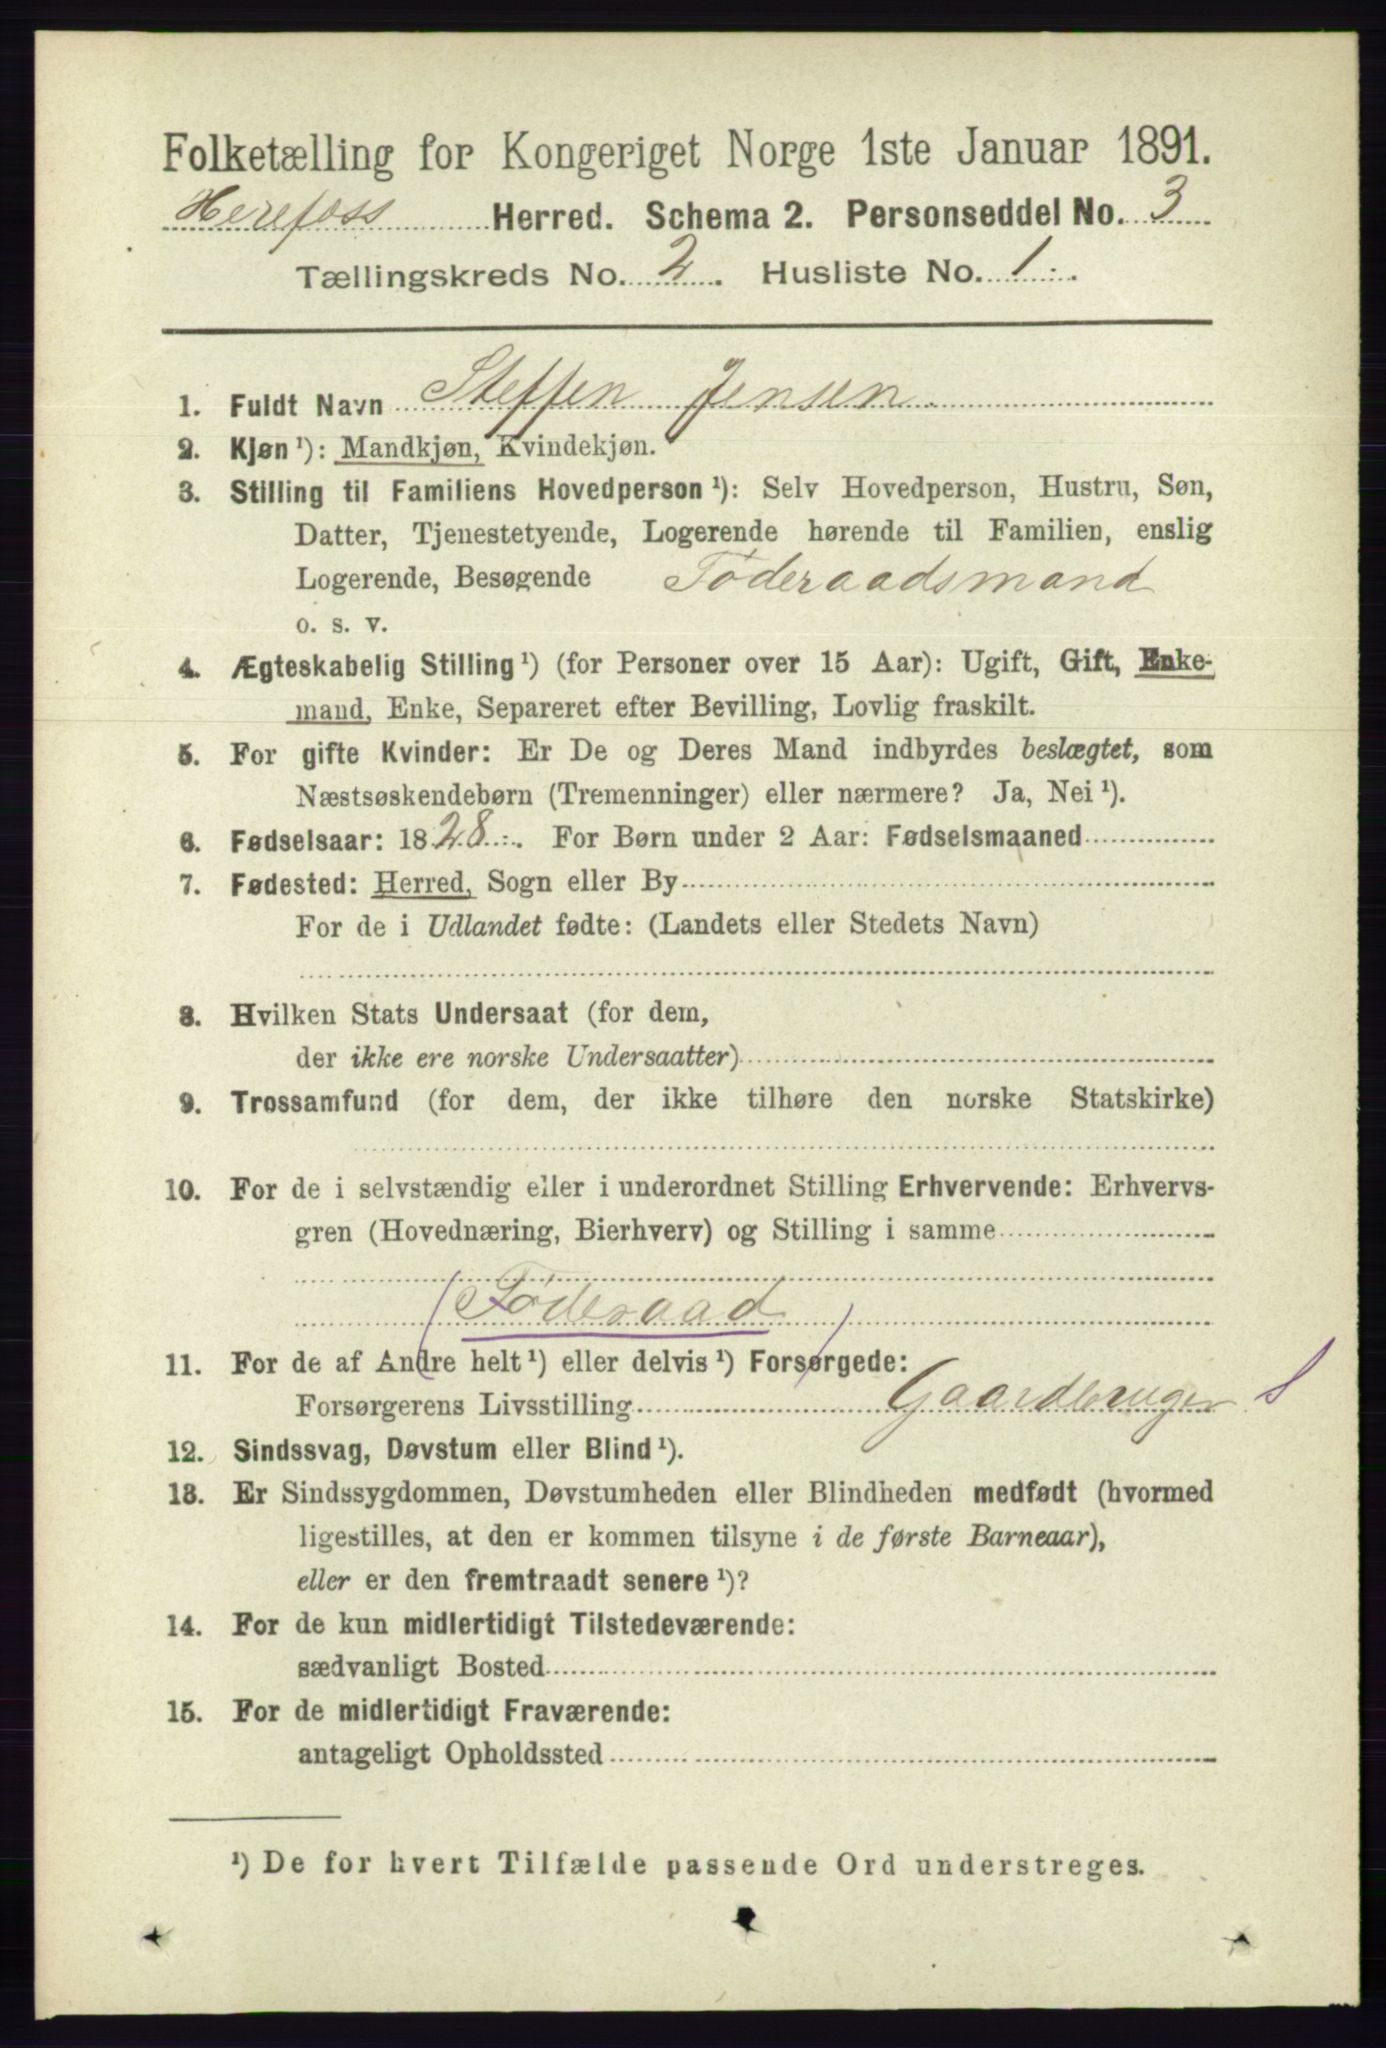 Folketælling for Kongeriget Norge 1ste Januar 1891.
Herefoss Herred. Schema 2. Personseddel No. 3
Tællingskreds No. 2. Husliste No. 1.
1. Fuldt Navn Steffen Jensen
2. Kjøn¹): Mandkjøn, Kvindekjøn.
3. Stilling til Familiens Hovedperson¹): Selv Hovedperson, Hustru, Søn,
Datter, Tjenestetyende, Logerende hørende til Familien, enslig
Logerende, Besøgende Föderaadsmand
o. s. v.
4. Ægteskabelig Stilling¹) (for Personer over 15 Aar): Ugift, Gift, Enke-
mand, Enke, Separeret efter Bevilling, Lovlig fraskilt.
5. For gifte Kvinder: Er De og Deres Mand indbyrdes beslægtet, som
Næstsøskendebørn (Tremenninger) eller nærmere? Ja, Nei¹).
6. Fødselsaar: 1828. For Børn under 2 Aar: Fødselsmaaned
7. Fødested: Herred, Sogn eller By
For de i Udlandet fødte: (Landets eller Stedets Navn)
8. Hvilken Stats Undersaat (for dem,
der ikke ere norske Undersaatter)
9. Trossamfund (for dem, der ikke tilhøre den norske Statskirke)
10. For de i selvstændig eller i underordnet Stilling Erhvervende: Erhvervs-
gren (Hovednæring, Bierhverv) og Stilling i samme
(Föderaad)
11. For de af Andre helt¹) eller delvis¹) Forsørgede:
Forsørgerens Livsstilling Gaardbruger S
12. Sindssvag, Døvstum eller Blind¹).
13. Er Sindssygdommen, Døvstumheden eller Blindheden medfødt (hvormed
ligestilles, at den er kommen tilsyne i de første Barneaar),
eller er den fremtraadt senere¹)?
14. For de kun midlertidigt Tilstedeværende:
sædvanligt Bosted
15. For de midlertidigt Fraværende:
antageligt Opholdssted
¹) De for hvert Tilfælde passende Ord understreges.